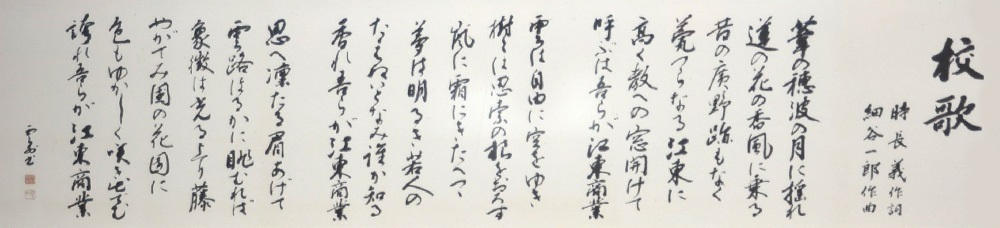 校歌
時長義作詞
細谷一郎作曲
葦の穂波の月に揺れ
蓮の花の香風に乗る
昔の広野跡もなく
甍つらなる江東に
高く教への窓開けて
呼ぶは吾らが江東商業
雲は自由に空をゆき
樹々は忍苦の根をおろす
嵐に霜にきたへつゝ
夢は明るき若人の
いとなみ誰か知る
香れ吾らが江東商業
思へ凛たる眉あげて
雲路はるかに眺むれば
象徴は光る上り藤
やがてみ園の花園に
色もゆかしく咲き
誇れ吾らが江東商業